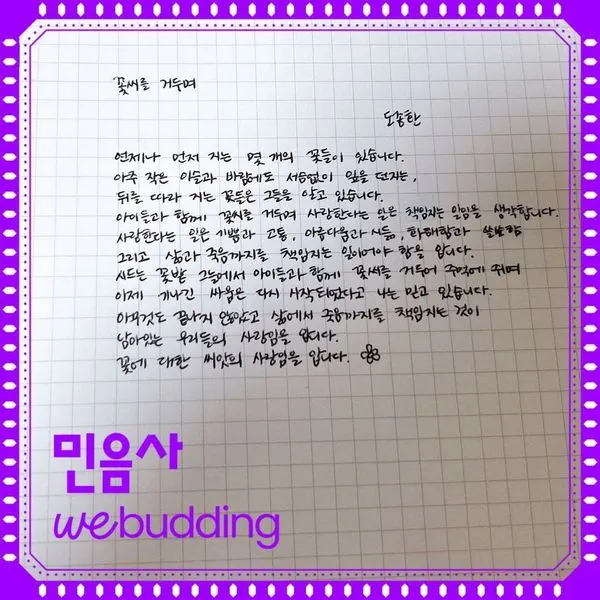 꽃씨를 거두며
도종환
언제나 먼저 지는 몇 개의 꽃들이 있습니다.
아주 작은 이슬과 바람에도 서슴없이 잎을 던지는,
뒤를 따라 지는 꽃들은 그들을 알고 있습니다.
아이들과 함께 꽃씨를 거두며 사랑한다는 일은 책임지는 일임을 생각합니다.
사랑한다는 일은 기쁨과 고통, 아름다움과 시듦, 화해함과 쓸쓸함
그리고 삶과 죽음까지를 책임지는 일이어야 함을 압니다.
시드는 꽃밭 그늘에서 아이들과 함께 꽃씨를 거두어 주먹에 쥐며
이제 기나긴 싸움은 다시 시작되었다고 나는 믿고 있습니다.
아무것도 끝나지 않았고 삶에서 죽음까지를 책임지는 것이
남아있는 우리들의 사랑임을 압니다.
꽃에 대한 씨앗의 사랑임을 압니다.
민음사
webudding